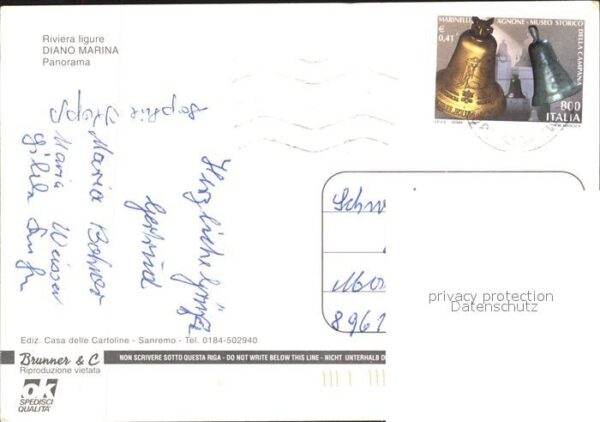 Riviera ligure
DIANO MARINA
Panorama
MARINELLI AGNONE - MUSEO STORICO DELLA CAMPANA
€
0,41
800
ITALIA
Sophie
Maria Bohner
Maria Weisser
Herzliche Grüße
Gertrud
Schw
8961
privacy protection
Datenschutz
Ediz. Casa delle Cartoline - Sanremo - Tel. 0184-502940
Brunner & C
Riproduzione vietata
NON SCRIVERE SOTTO QUESTA RIGA - DO NOT WRITE BELOW THIS LINE - NICHT UNTERHALB D
ok
SPEDISCI
QUALITA'